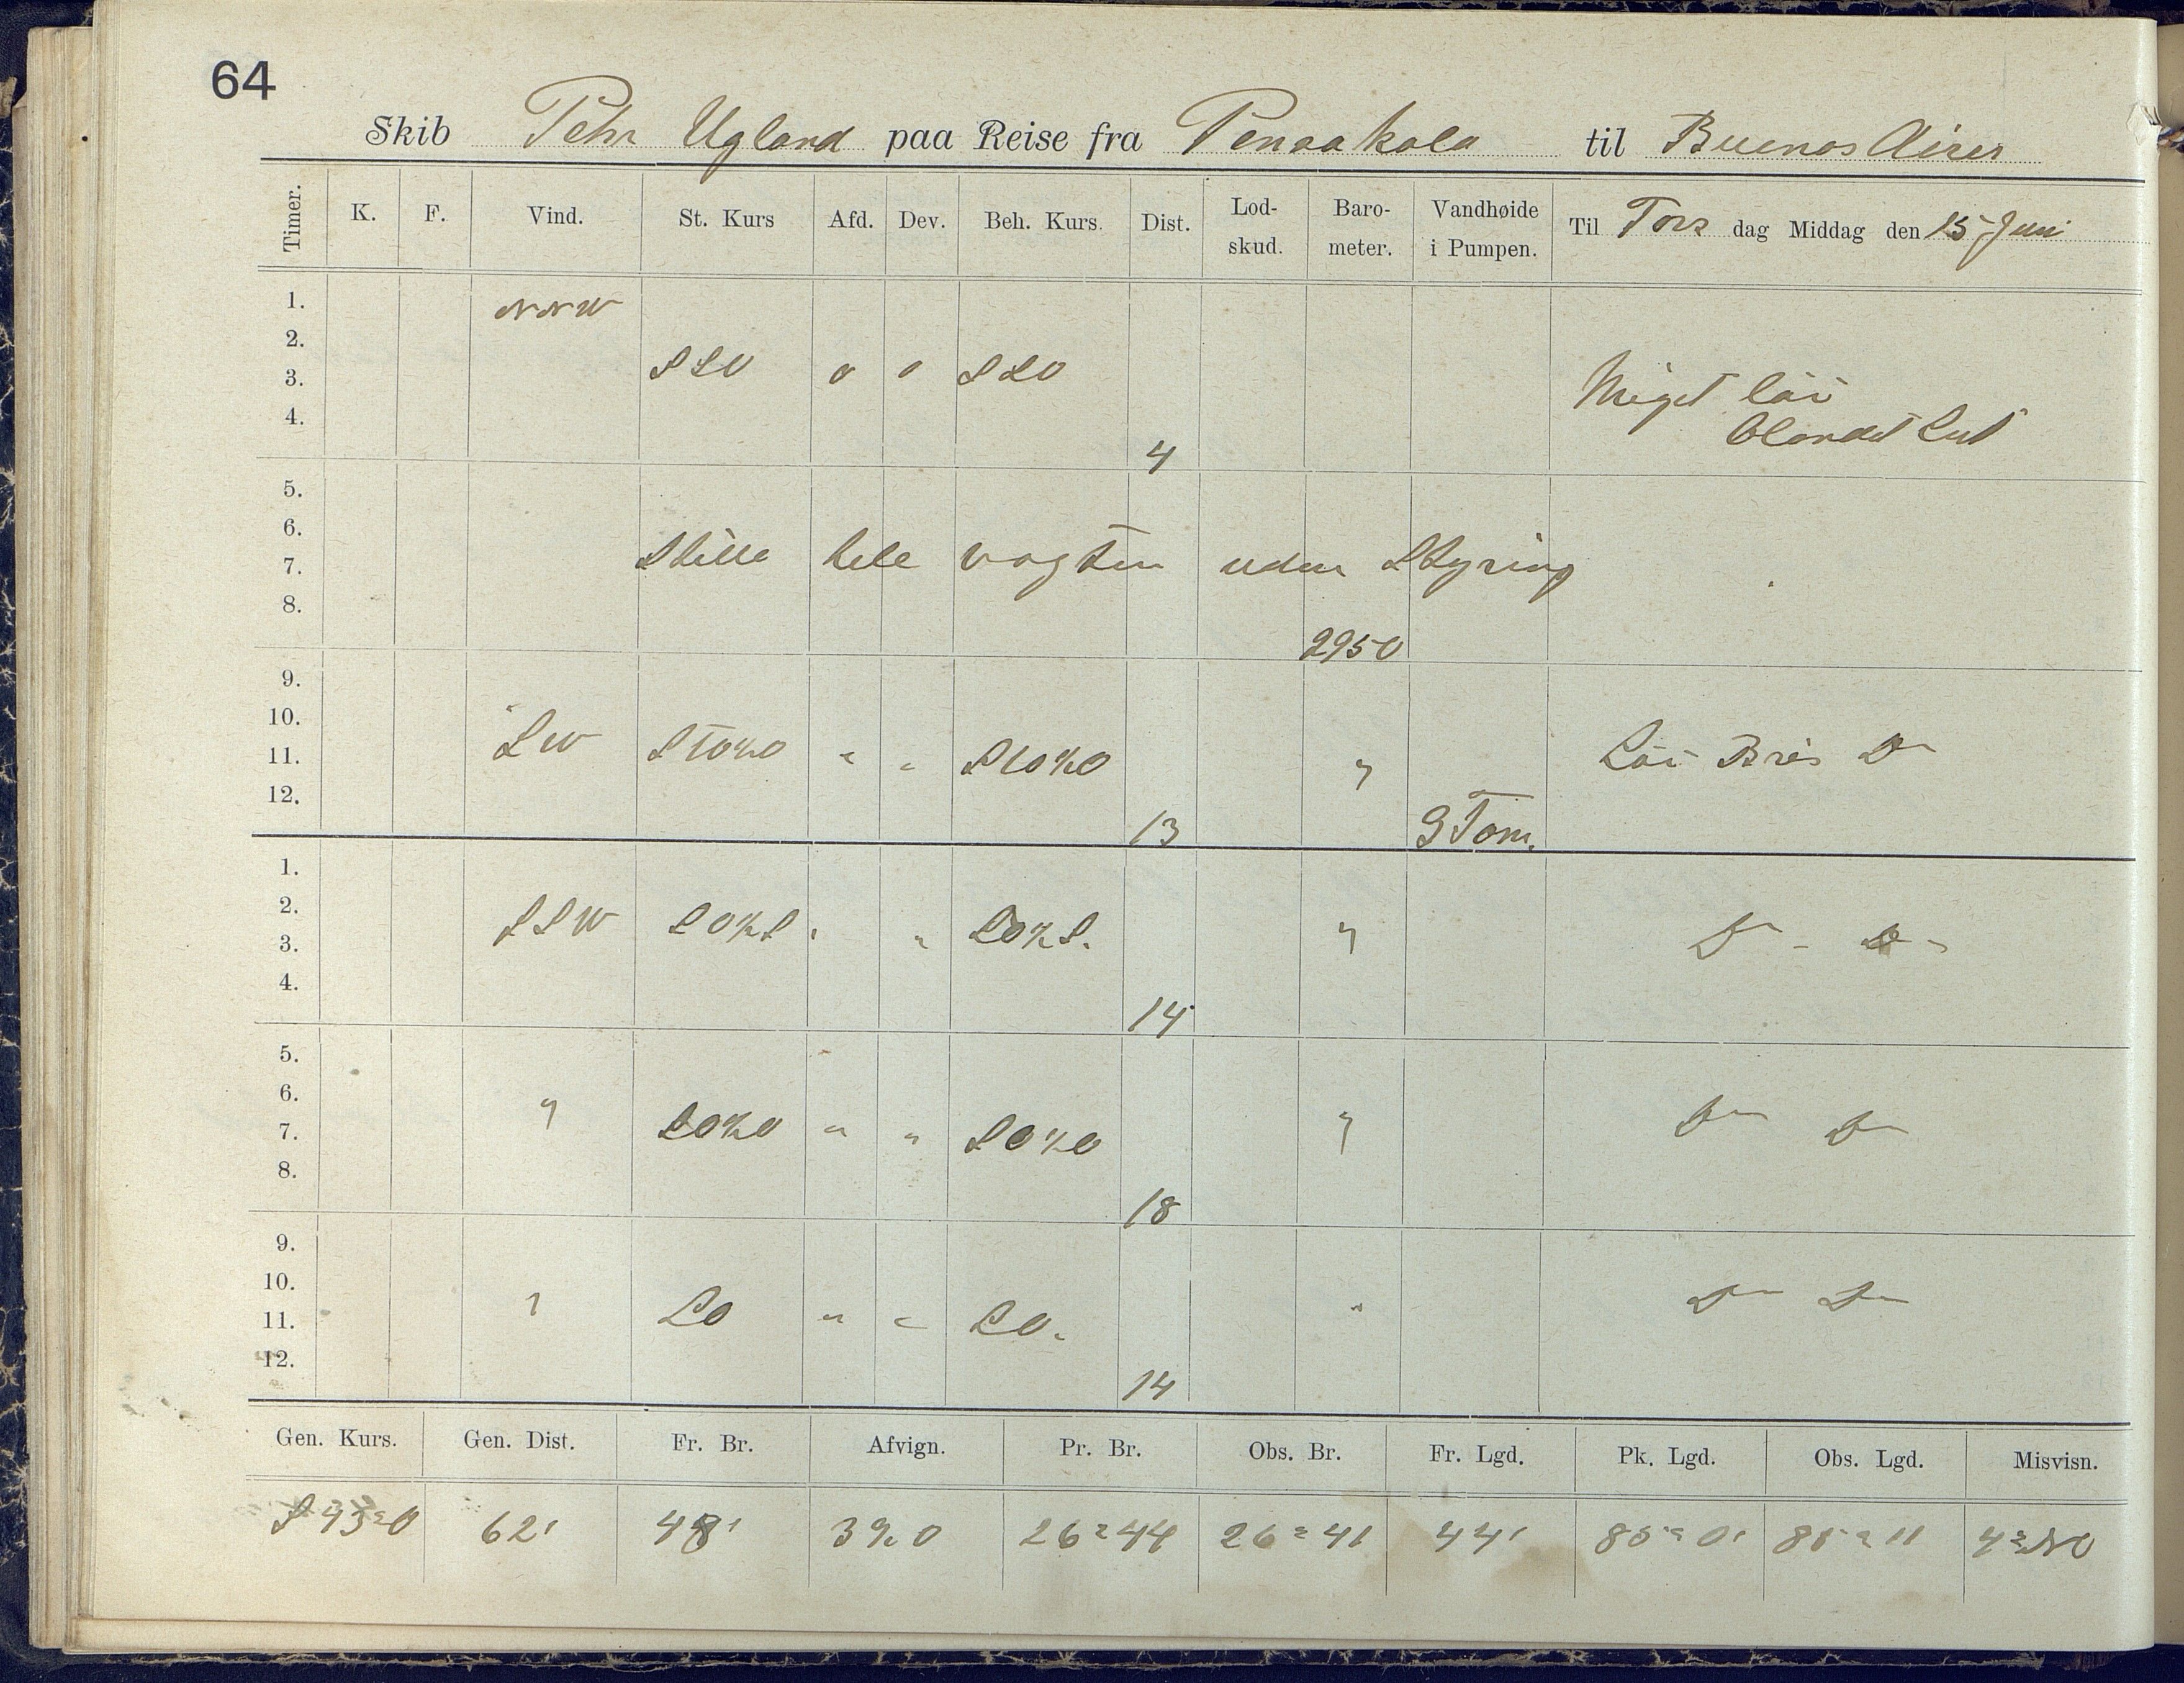 64
Skib Pehr Ugland paa Reise fra Pensakola til Buenos Aires
Timer. K. F. Vind. St. Kurs Afd. Dev. Beh. Kurs. Dist. Lod-skud. Baro-meter. Vandhøide i Pumpen. Til Tors dag Middag den 15 Juni
1. NNW
2.
3. SSO 0 0 SSO Meget löi
4. blandet Luft
4
5.
6.
7. Stille hele vagten uden Styring
8.
2950
9.
10.
11. SW StO½O " " StO½O " Löi Bris Do
12.
13 9 Tom.
1.
2.
3. SSW SO½S " " SO½S. " Do - Do -
4.
14
5.
6.
7. " SO½O " " SO½O " Do Do
8.
18
9.
10.
11. " SO " " SO. " Do Do
12.
14
Gen. Kurs. Gen. Dist. Fr. Br. Afvign. Pr. Br. Obs. Br. Fr. Lgd. Pk. Lgd. Obs. Lgd. Misvisn.
62' 48' 39 O 26°44 26°41 44' 85°0' 85°11 4°NO